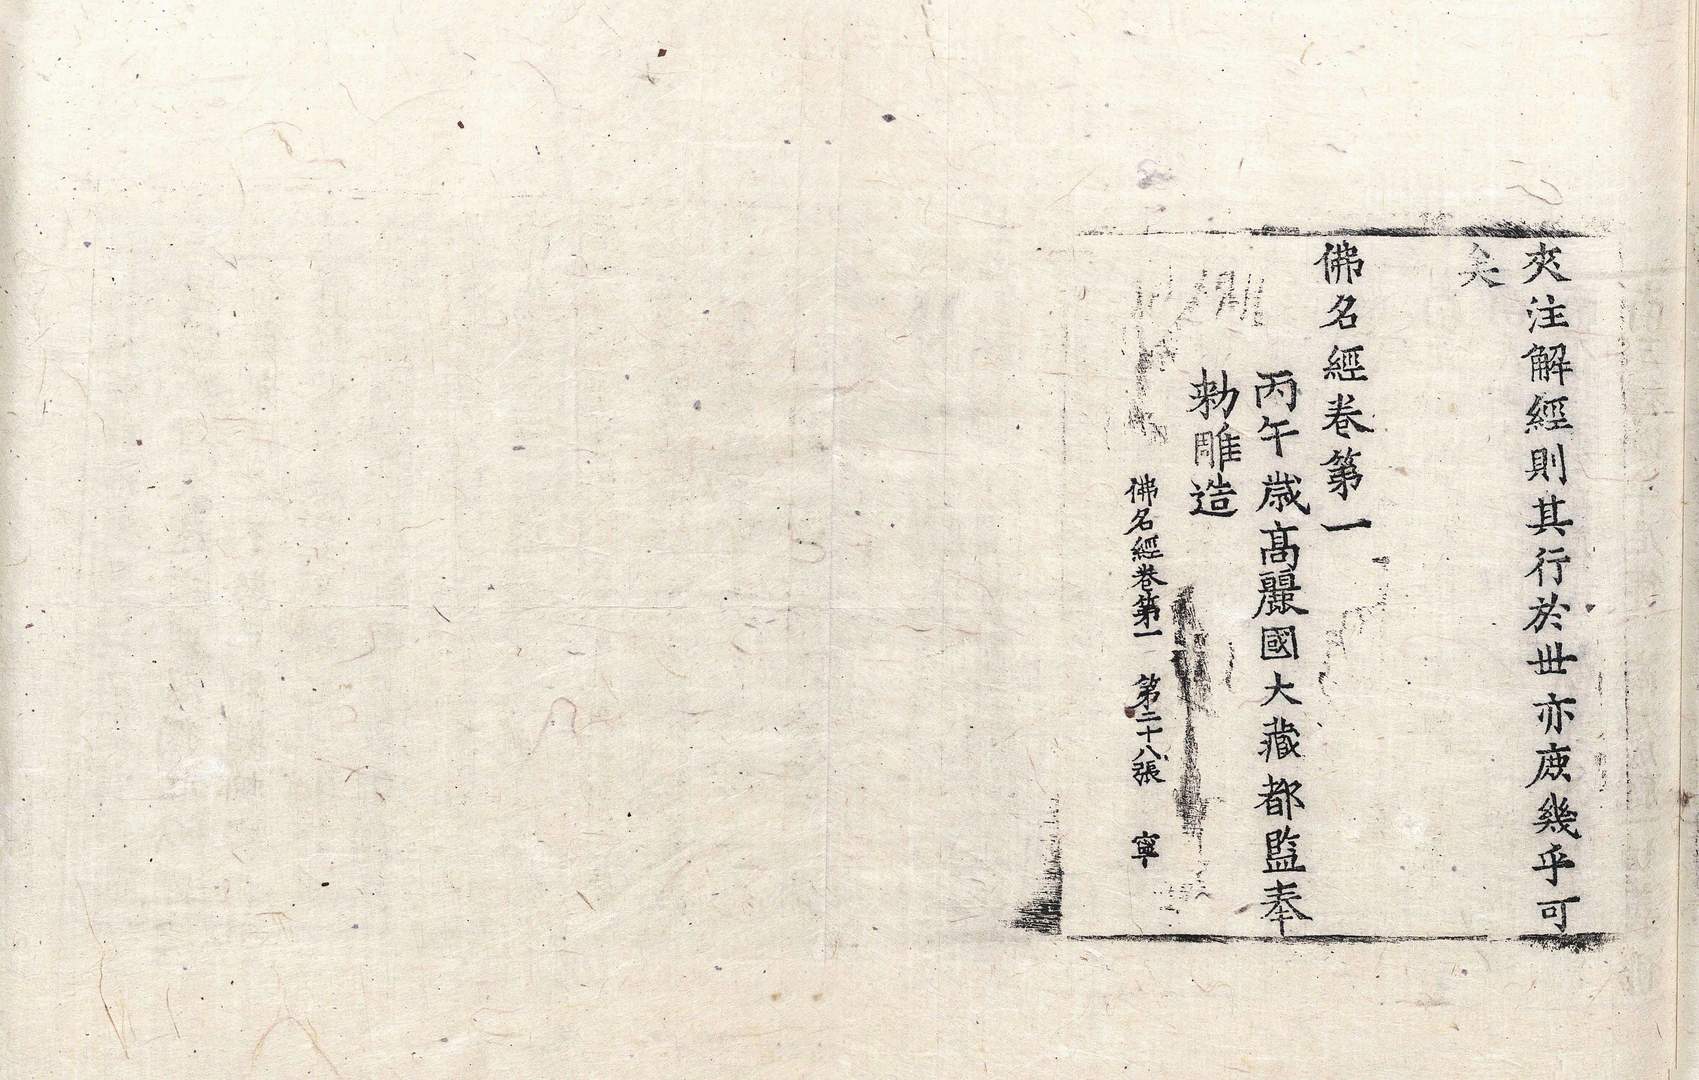 夾注解經則其行於世亦庶幾乎可
矣
佛名經卷第一
丙午歲高麗國大藏都監奉
勅雕造
佛名經卷第一 第二十八張 寧